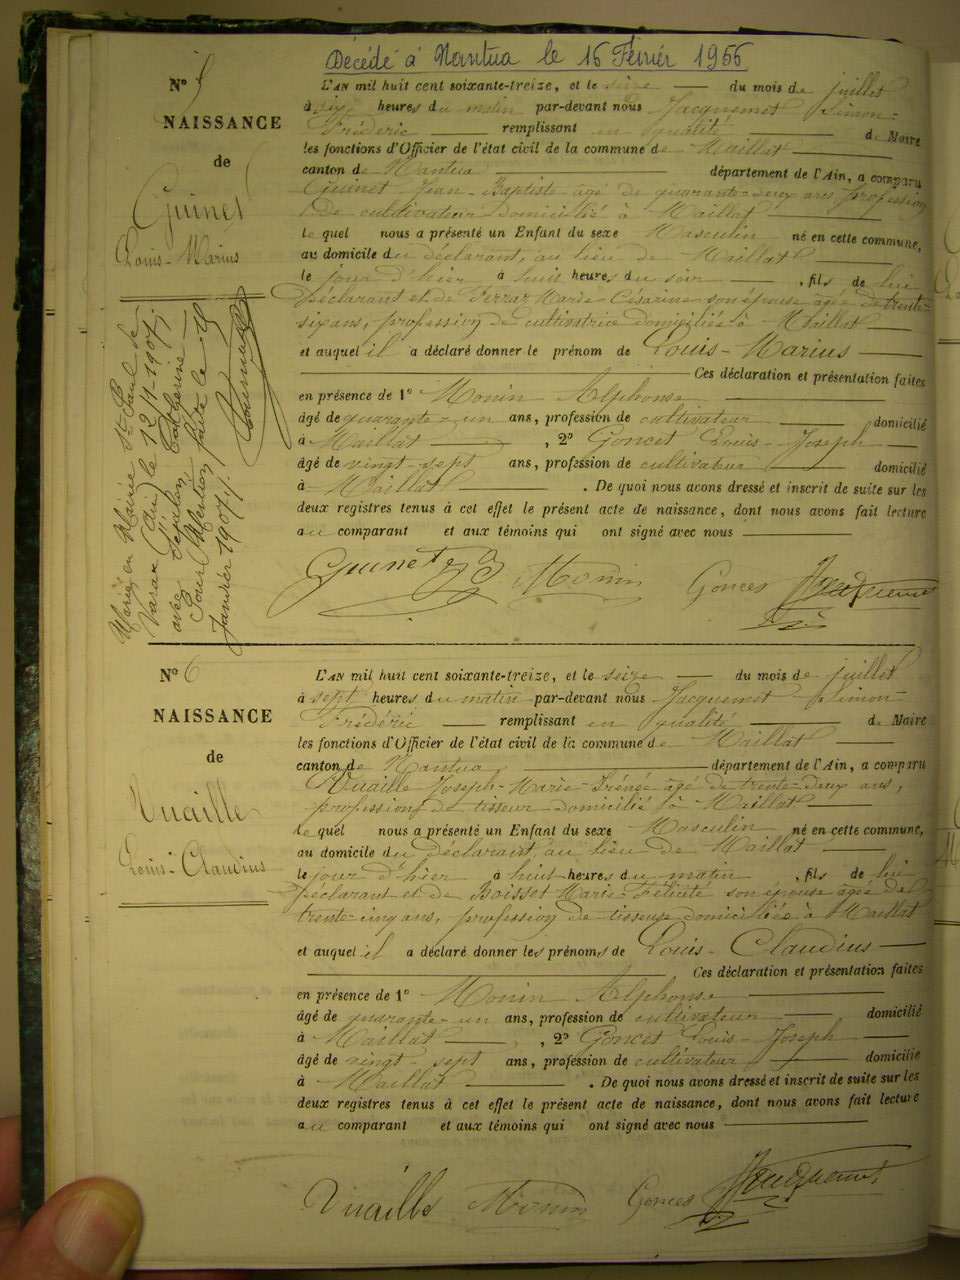 Décédé à Nantua le 16 Février 1956
N° 5
NAISSANCE
de
Guinet
Louis-Marius
Marié en Mairie St Paul de
Varax (Ain) le 12/1-1907,
avec Catherine
Pour Mention faite le 19
Janvier 1907.
L'AN mil huit cent soixante-treize, et le seize du mois de juillet
à six heures du matin par-devant nous Jacquemet Simon-
Frédéric remplissant en qualité de Maire
les fonctions d'Officier de l'état civil de la commune de Maillat
canton de Nantua département de l'Ain, a comparu
Guinet Jean-Baptiste âgé de quarante-deux ans, profession
de cultivateur domicilié à Maillat
lequel nous a présenté un Enfant du sexe Masculin né en cette commune,
au domicile du déclarant, au lieu de Maillat
le jour d'hier à huit heures du soir, fils de lui
déclarant et de Ferraz Marie Césarine son épouse âgée de trente-
six ans, profession de cultivatrice domiciliés à Maillat
et auquel il a déclaré donner le prénom de Louis-Marius
Ces déclaration et présentation faites
en présence de 1° Monin Alphonse
âgé de quarante-un ans, profession de cultivateur domicilié
à Maillat, 2° Goncet Louis-Joseph
âgé de vingt-sept ans, profession de cultivateur domicilié
à Maillat. De quoi nous avons dressé et inscrit de suite sur les
deux registres tenus à cet effet le présent acte de naissance, dont nous avons fait lecture
au comparant et aux témoins qui ont signé avec nous
Guinet JB Monin Goncet Jacquemet
N° 6
NAISSANCE
de
Vuaille
Louis-Claudius
L'AN mil huit cent soixante-treize, et le seize du mois de juillet
à sept heures du matin par-devant nous Jacquemet Simon-
Frédéric remplissant en qualité de Maire
les fonctions d'Officier de l'état civil de la commune de Maillat
canton de Nantua département de l'Ain, a comparu
Vuaille Joseph-Marie-Irénée âgé de trente-deux ans,
profession de tisseur domicilié à Maillat
lequel nous a présenté un Enfant du sexe Masculin né en cette commune,
au domicile du déclarant, au lieu de Maillat
le jour d'hier à huit heures du matin, fils de lui
déclarant et de Boisset Marie-Félicité son épouse âgée de
trente-cinq ans, profession de tisseuse domiciliés à Maillat
et auquel il a déclaré donner les prénoms de Louis-Claudius
Ces déclaration et présentation faites
en présence de 1° Monin Alphonse
âgé de quarante-un ans, profession de cultivateur domicilié
à Maillat, 2° Goncet Louis-Joseph
âgé de vingt-sept ans, profession de cultivateur domicilié
à Maillat. De quoi nous avons dressé et inscrit de suite sur les
deux registres tenus à cet effet le présent acte de naissance, dont nous avons fait lecture
au comparant et aux témoins qui ont signé avec nous
Vuaille Monin Goncet Jacquemet